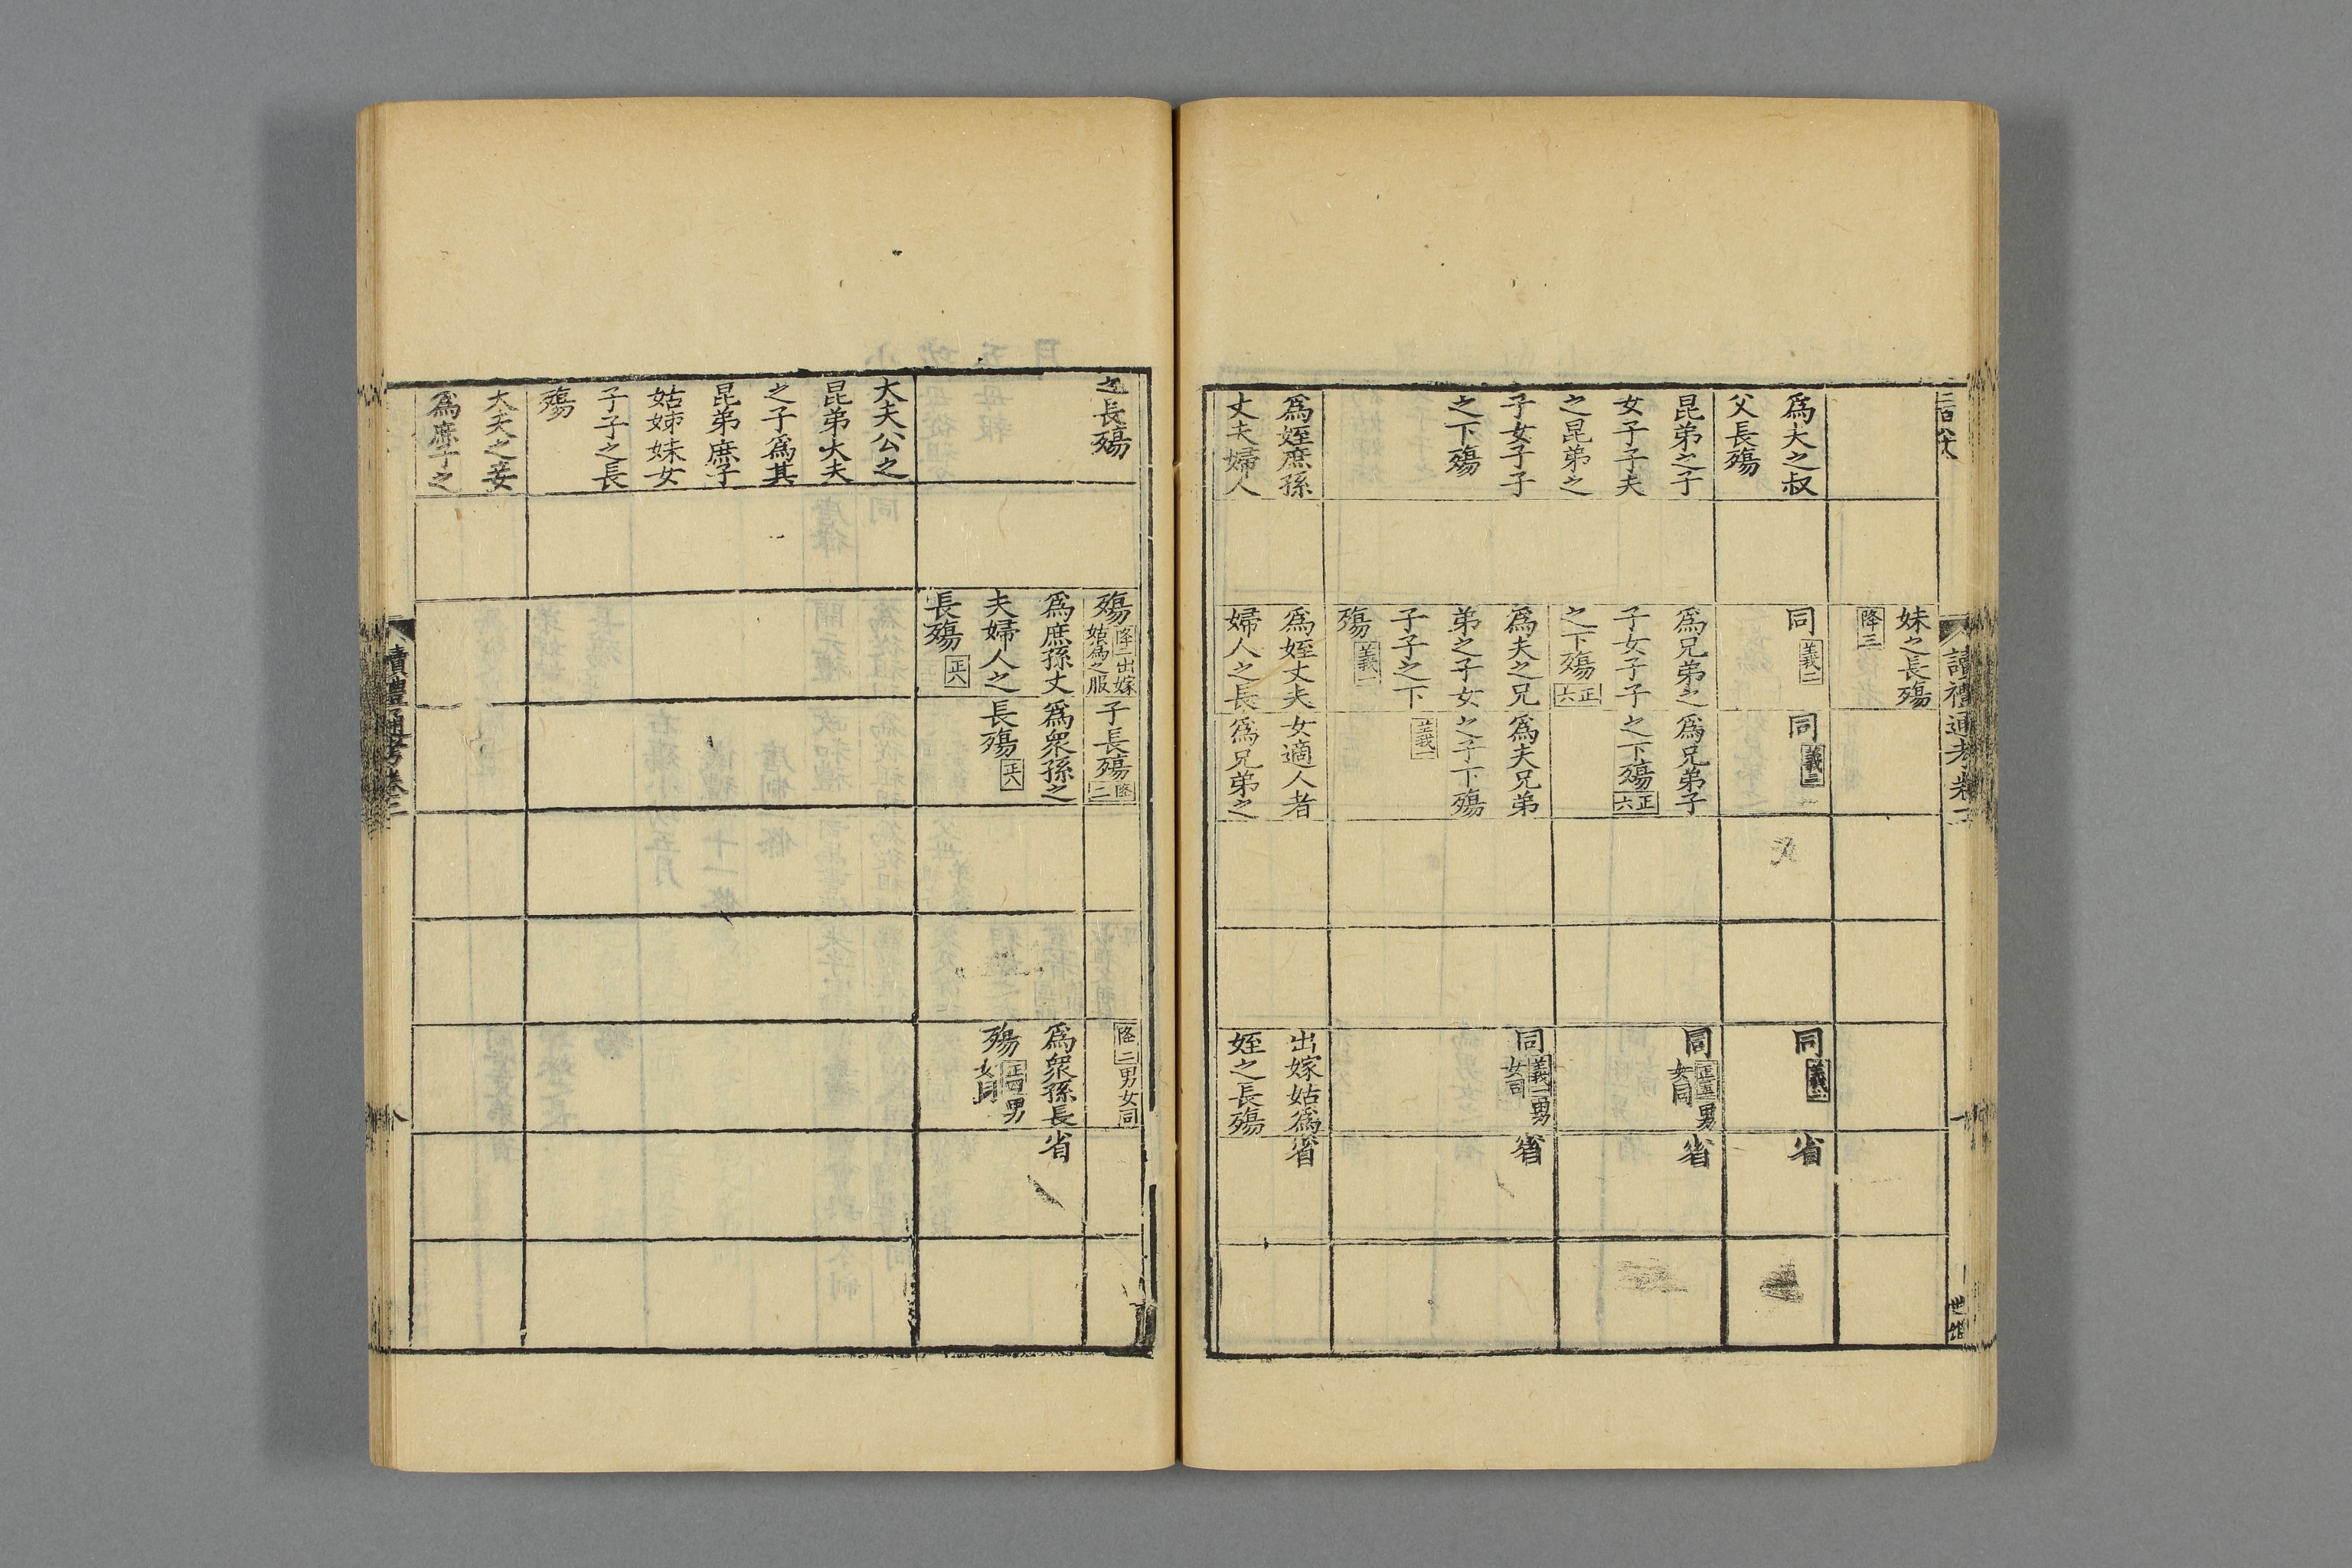 讀禮通考卷二
妹之長殤
降三
為夫之叔
父長殤
同義二
同義三
同
省
昆弟之子
女子子夫
之昆弟之
子女子子
之下殤
為兄弟之
子女子子
之下殤正六
為夫之兄
弟之子女
子子之下
殤義一
為兄弟子
之下殤正六
為夫兄弟
之子下殤
義一
同正五男女同
省
同義一男女同
省
為姪庶孫
丈夫婦人
為姪丈夫
婦人之長
女適人者
為兄弟之
出嫁姑為
姪之長殤
省
之長殤
殤降二出嫁姑為之服
子長殤降二
降二男女同
為庶孫丈
夫婦人之
長殤正六
為眾孫之
長殤正六
為眾孫長
殤正四男女同
省
大夫公之
昆弟大夫
之子為其
昆弟庶子
姑姊妹女
子子之長
殤
大夫之妾
為庶子之
讀禮通考卷二